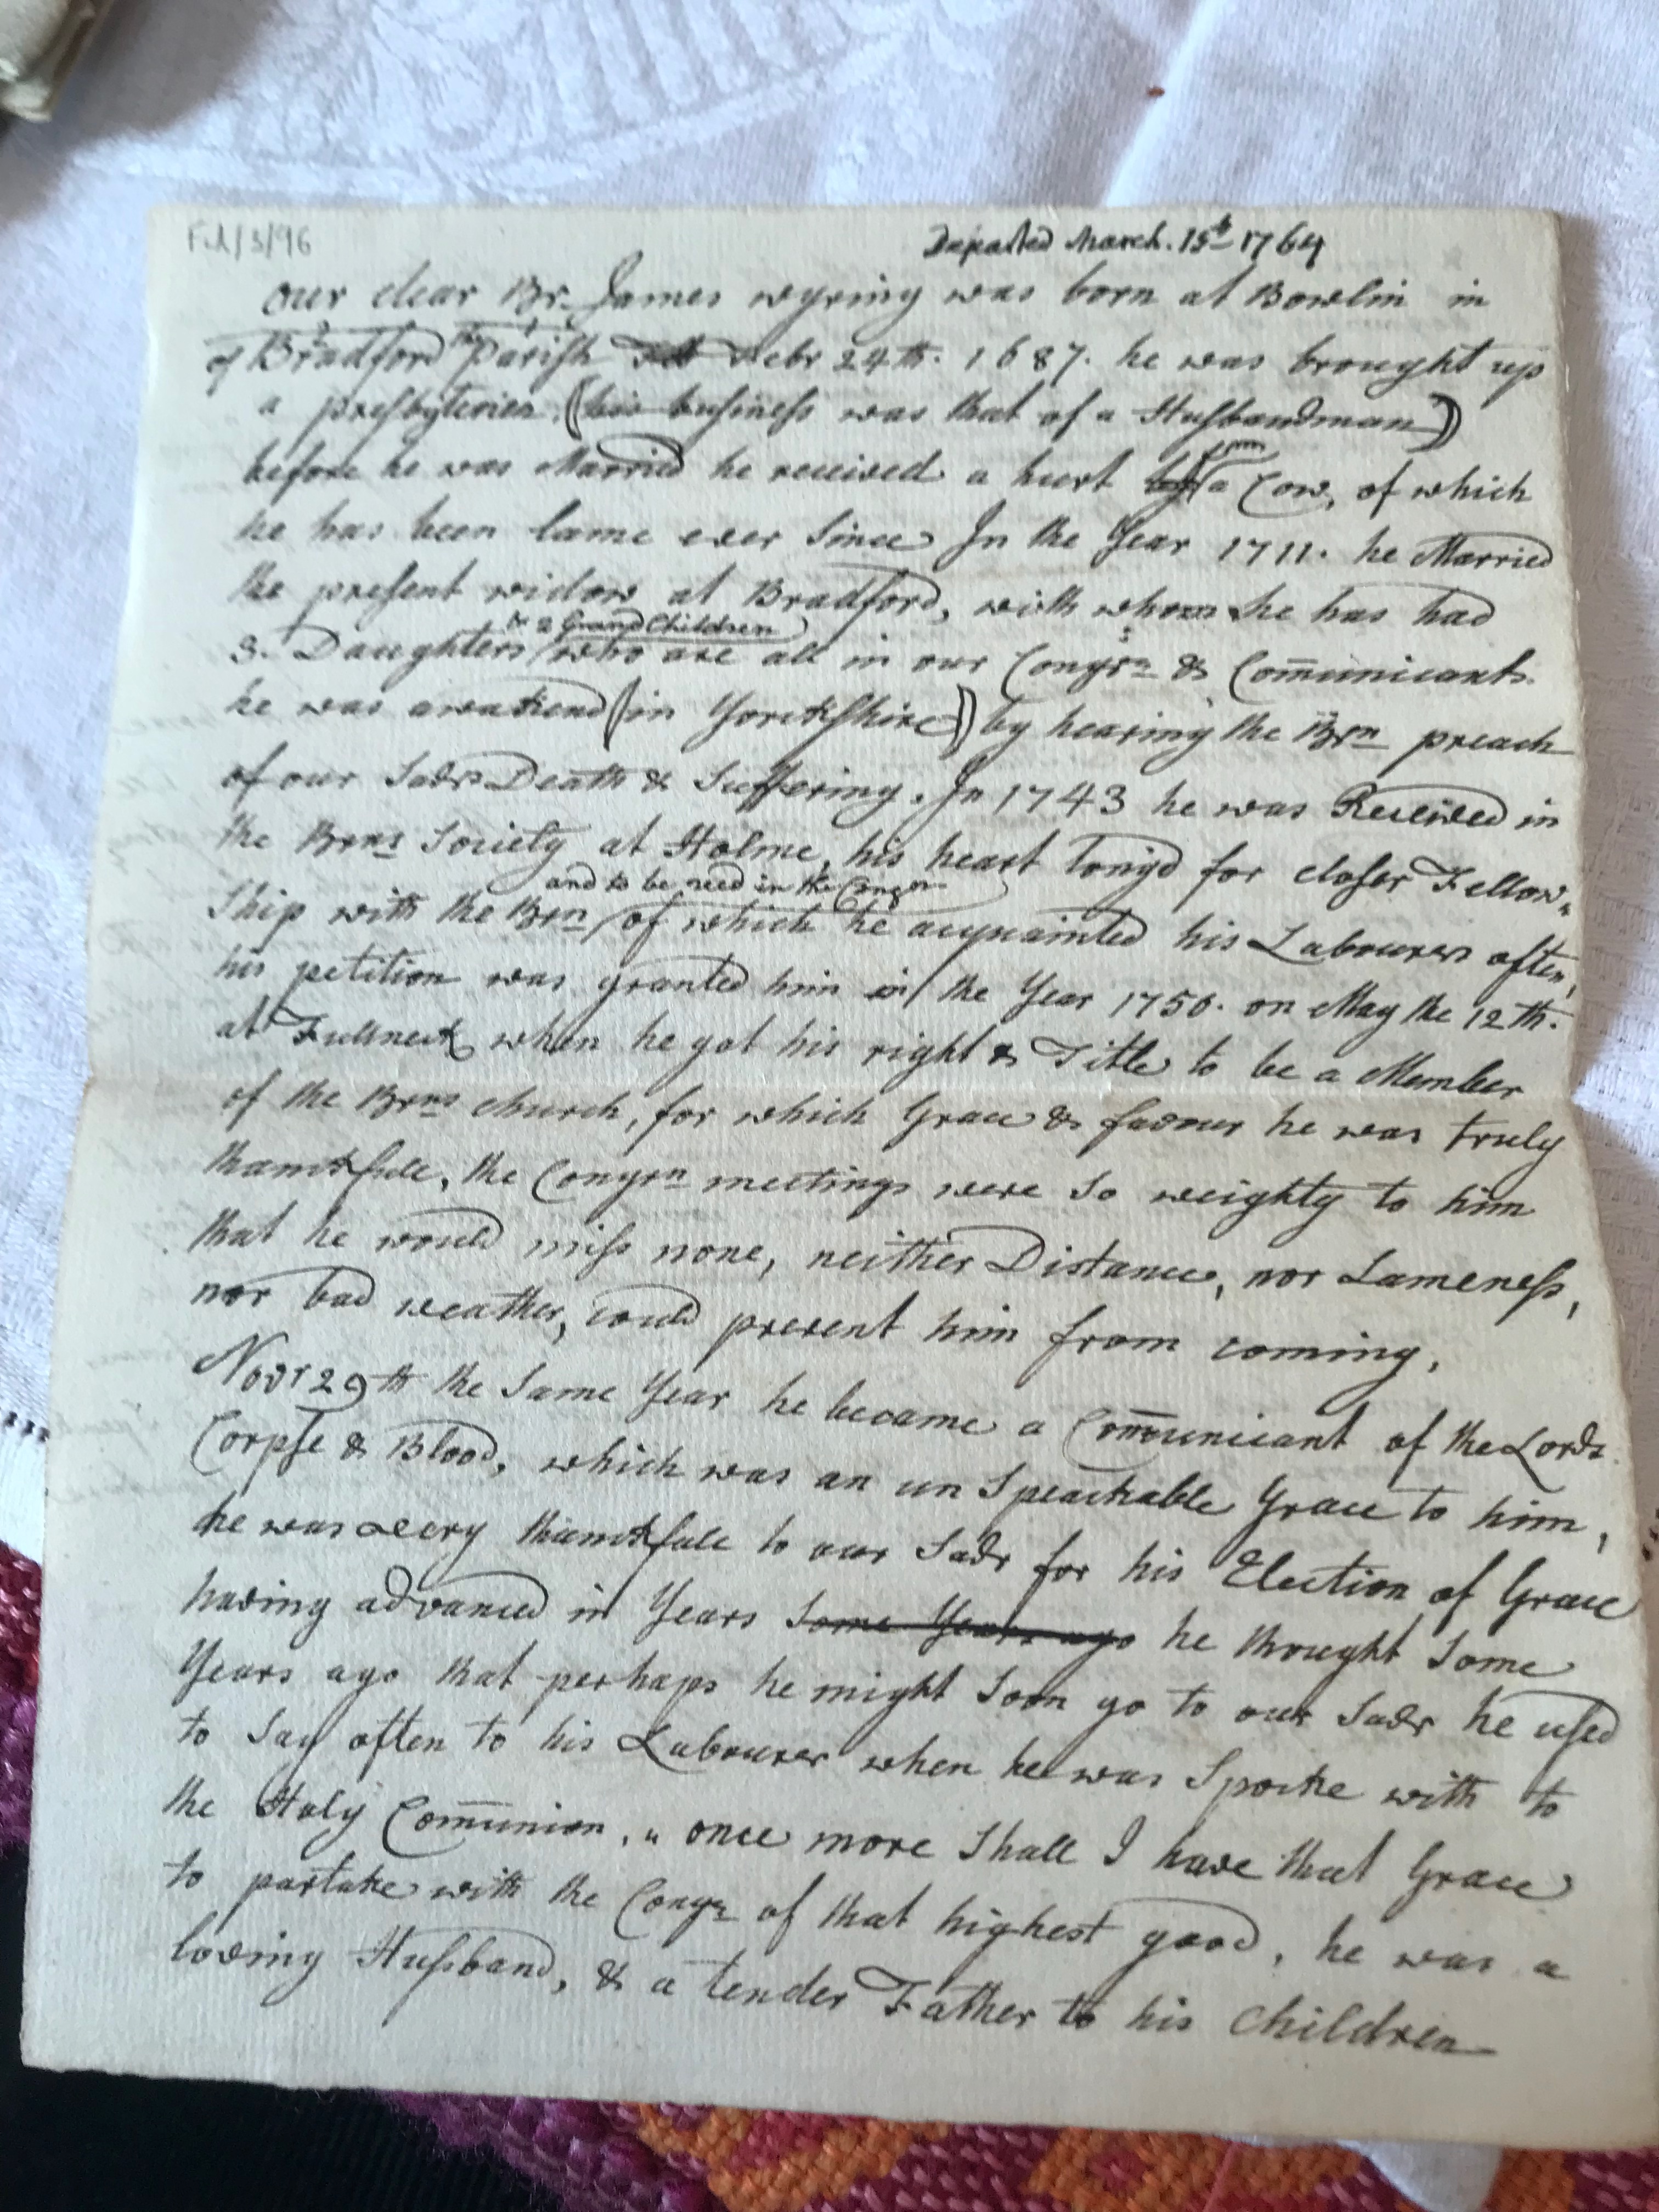 Ful/3/96
Departed March. 15th 1764
Our dear Br. James wyring was born at Bowlin in
of Bradford the Parish Febr 24th. 1687. he was brought up
a presbyterien, (his business was that of a Husbandman)
before he was Married he received a hurt by from a Cow, of which
he has been lame ever Since In the Year 1711. he Married
the present widow at Bradford, with whom he has had
& 2 Grand Children
3. Daughters who are all in our Congrn & Com̅unicants.
he was awakend (in Yorkshire) by hearing the Brn preach
of our Sabrs Death & Suffering. In 1743 he was Received in
the Brns Society at Holme, his heart long'd for closer Fellow„
and to be recd in the Congn
Ship with the Brn, of which he acquainted his Labourers often,
his petition was granted him in the Year 1756. on May the 12th.
at Fullneck when he got his right & Title to be a Member
of the Brns church, for which Grace & favour he was truly
thankfull, the Congrn meetings were So weighty to him
that he would miss none, neither Distance, nor Lameness,
nor bad weather, could prevent him from coming.
Novr 29th the Same Year he became a Com̅unicant of the Lords
Corpse & Blood, which was an un Speackable Grace to him,
he was very thankfull to our Sabr for his Election of Grace
having advanced in Years Some Years ago he thought Some
Years ago that perhaps he might Soon go to our Sabr he used
to Say often to his Labourer when he was Spocke with to
the Holy Com̅union, „ once more Shall I have that Grace
to partake with the Congn of that highest good, he was a
loving Husband, & a tender Father to his Children